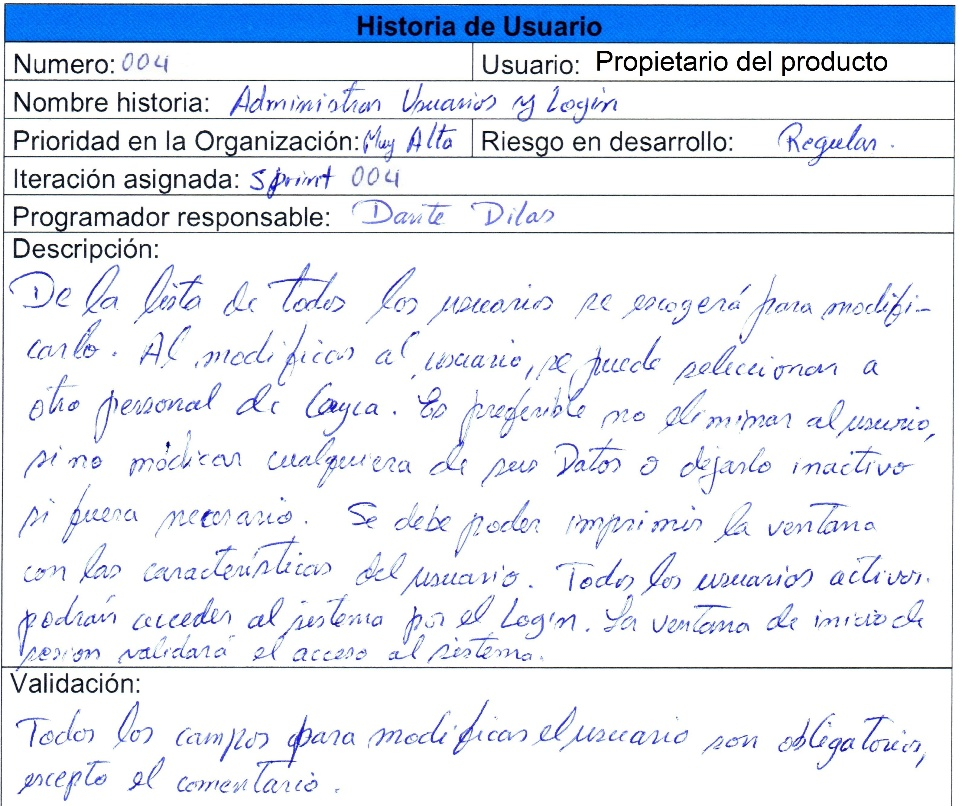 Historia de Usuario
Numero: 004 Usuario: Propietario del producto
Nombre historia: Administrar Usuarios y Login
Prioridad en la Organización: Muy Alta Riesgo en desarrollo: Regular.
Iteración asignada: Sprint 004
Programador responsable: Dante Dilas
Descripción:
De la lista de todos los usuarios se escogerá para modifi-
carlo. Al modificar al usuario, se puede seleccionar a
otro personal de Cayca. Es preferible no eliminar al usuario,
si no módicar cualquiera de sus Datos o dejarlo inactivo
si fuera necesario. Se debe poder imprimir la ventana
con las características del usuario. Todos los usuarios activos.
podrán acceder al sistema por el Login. La ventana de inicio de
sesion validará el acceso al sistema.
Validación:
Todos los campos para modificar el usuario son obligatorios,
excepto el comentario.